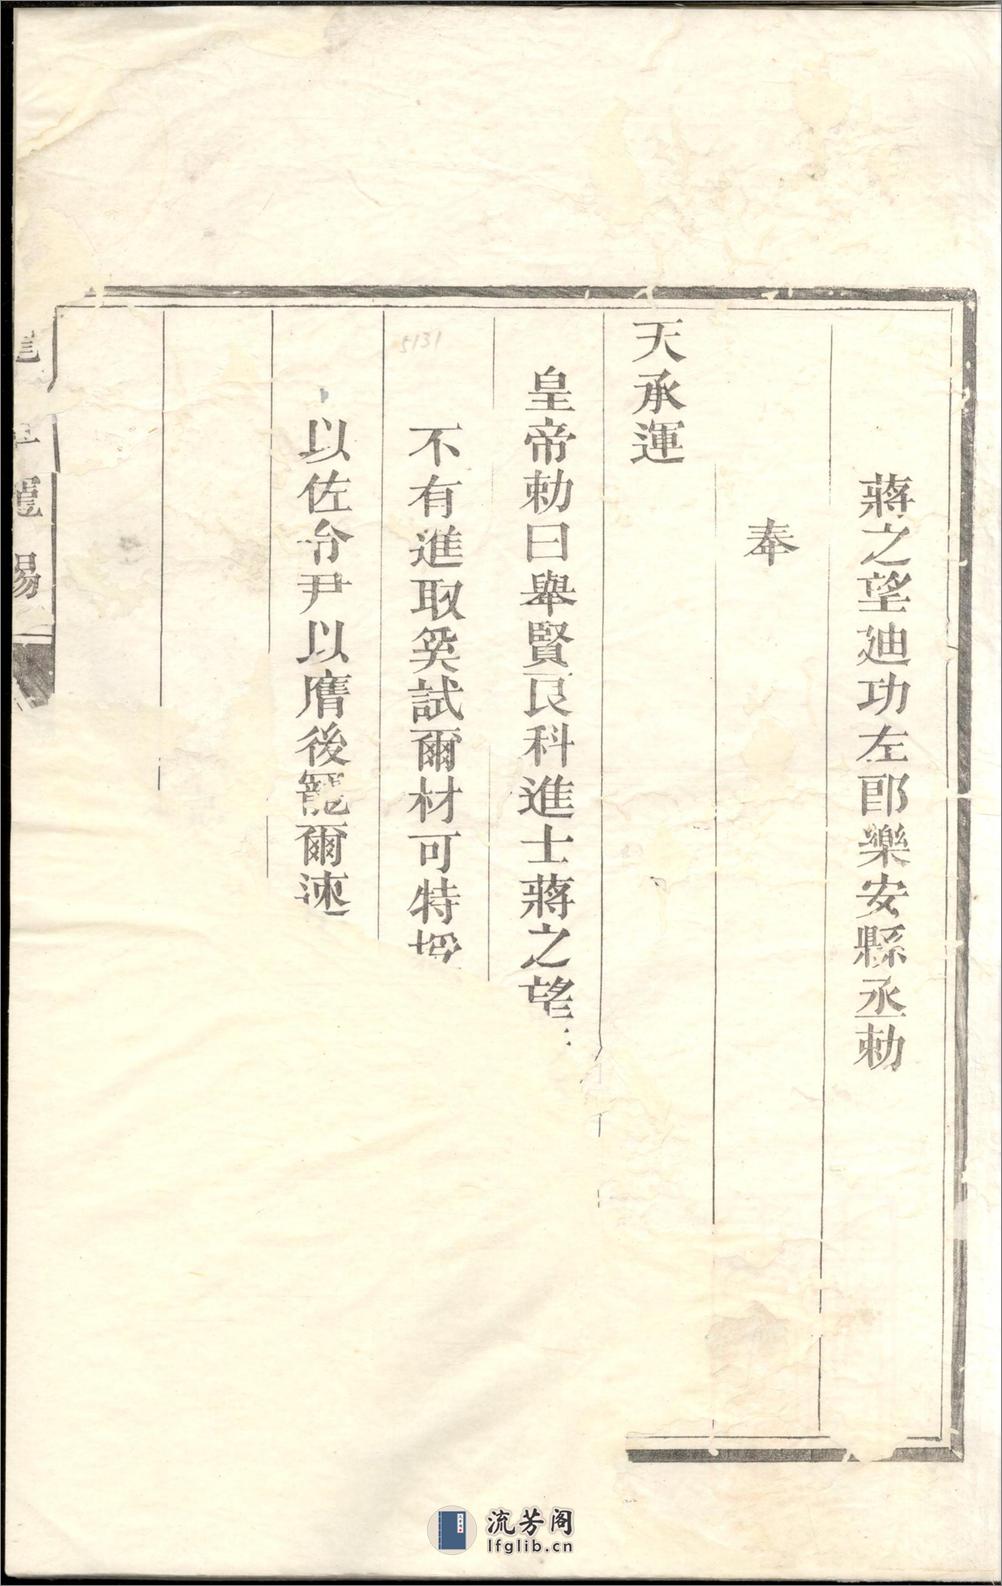 蔣之望迪功左郎樂安縣丞勅
奉
天承運
皇帝勅曰舉賢良科進士蔣之望
不有進取奚試爾材可特授
以佐令尹以膺後寵爾速
寵錫
5131
流芳阁
lfglib.cn